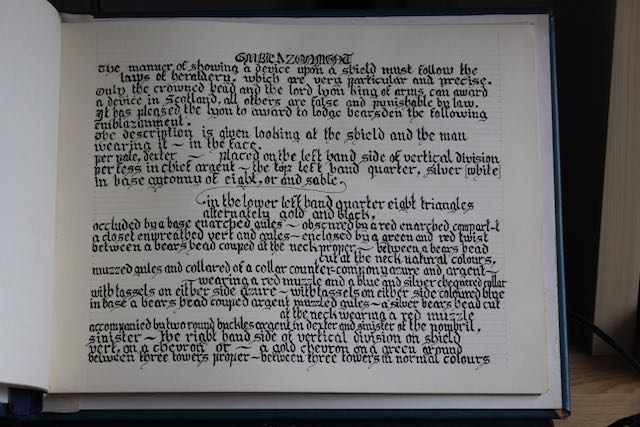 EMBLAZONMENT
The manner, of showing a device upon a shield must follow the
laws of heraldery, which are very particular and precise.
Only the crowned head and the lord lyon king of arms, can award
a device in Scotland, all others are false and punishable by law.
It has pleased the lyon to award to lodge bearsden the following
emblazonment.
The description is given looking at the shield and the man
wearing it ~ in the face.
per pale, dexter ~ placed on the left hand side of vertical division
per fess in chief argent ~ the top left hand quarter, silver [white]
in base gyronny of eight, or and sable,
in the lower left hand quarter eight triangles
alternately gold and black,
occluded by a base enarched gules ~ obscured by a red enarched compart-t
a closet enwreathed vert and gules ~ enclosed by a green and red twist
between a bears head couped at the neck proper ~ between a bears head
cut at the neck natural colours,
muzzed gules and collared of a collar counter-compony azure and argent ~
wearing a red muzzle and a blue and silver chequered collar
with tassels on either side azure ~ with tassels on either side coloured blue
in base a bears head couped argent muzzled gules ~ a silver bears head cut
at the neck wearing a red muzzle
accompanied by two round buckles argent in dexter and sinister of the nombril,
sinister ~ the right hand side of vertical division on shield
vert, on a chevron or ~ a gold chevron on a green ground
between three towers proper ~ between three towers in normal colours